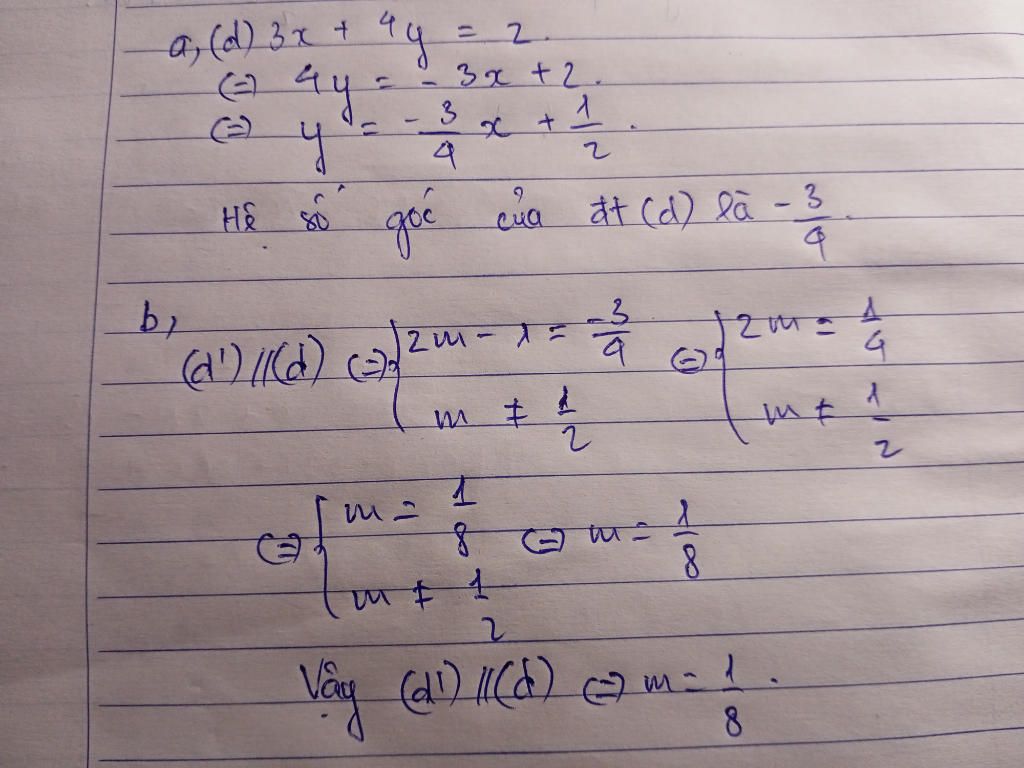 a, (d) 3x + 4y = 2.
(=) 4y = - 3x + 2.
(=) y = - 3/4 x + 1/2.
Hệ số góc của đt (d) là - 3/4.
b,
(d') // (d) (=) { 2m - 1 = -3/4 (=) { 2m = 1/4
m ≠ 1/2 m ≠ 1/2
(=) { m = 1/8 (=) m = 1/8
m ≠ 1/2
Vậy (d') // (d) (=) m = 1/8.